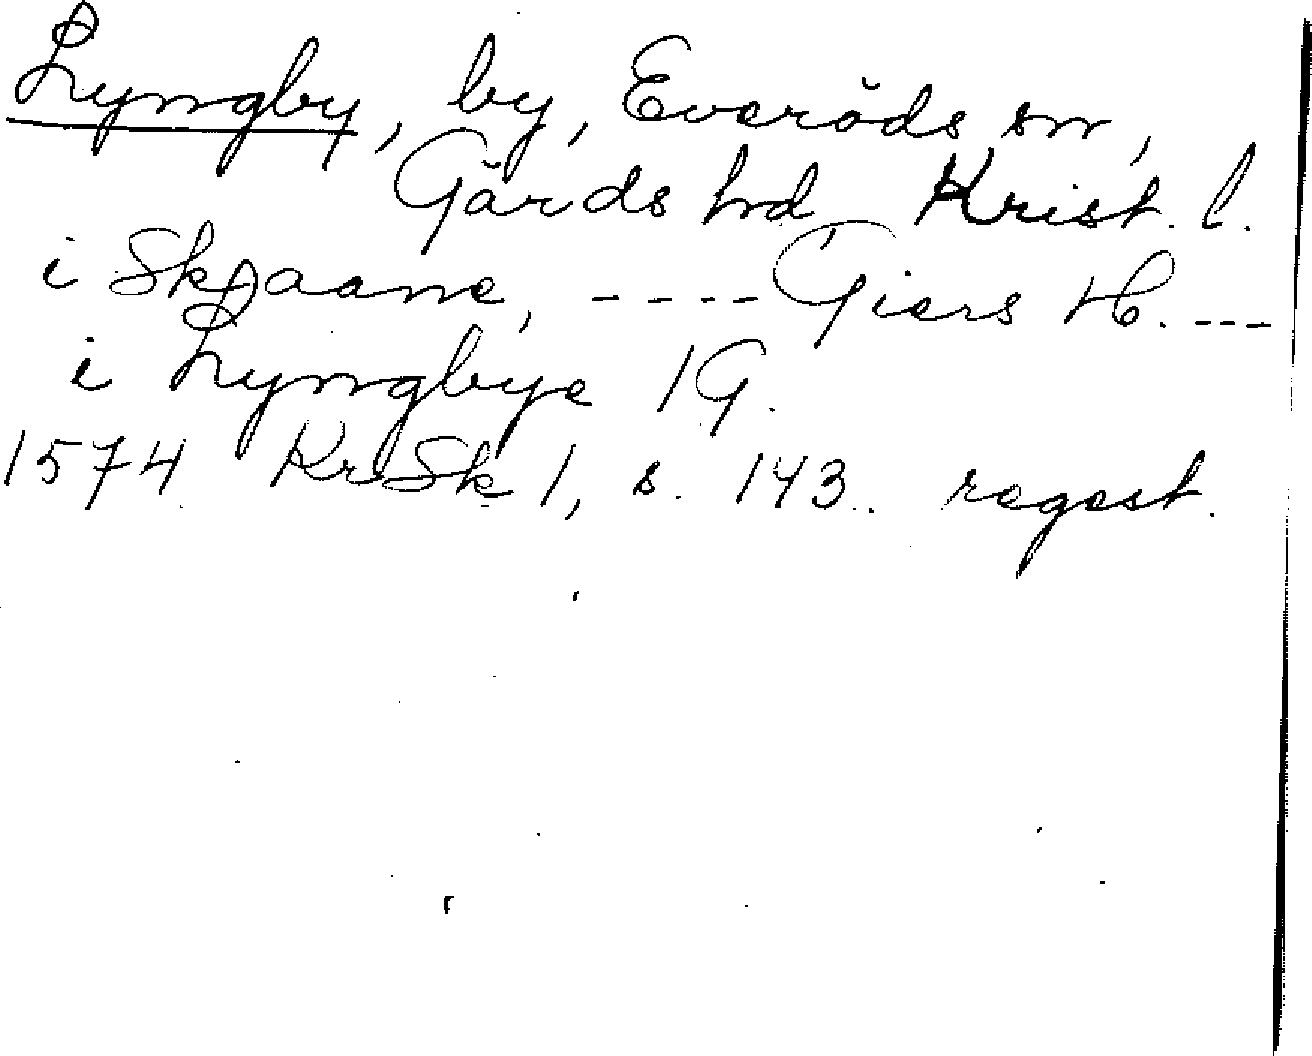 Lyngby, by, Everöds sn,
Gärds hd, Krist. l.
i Skaane, ---- Giers H. ---
i Lyngbye 1 G.
1574 KrSk 1, s. 143. regest.